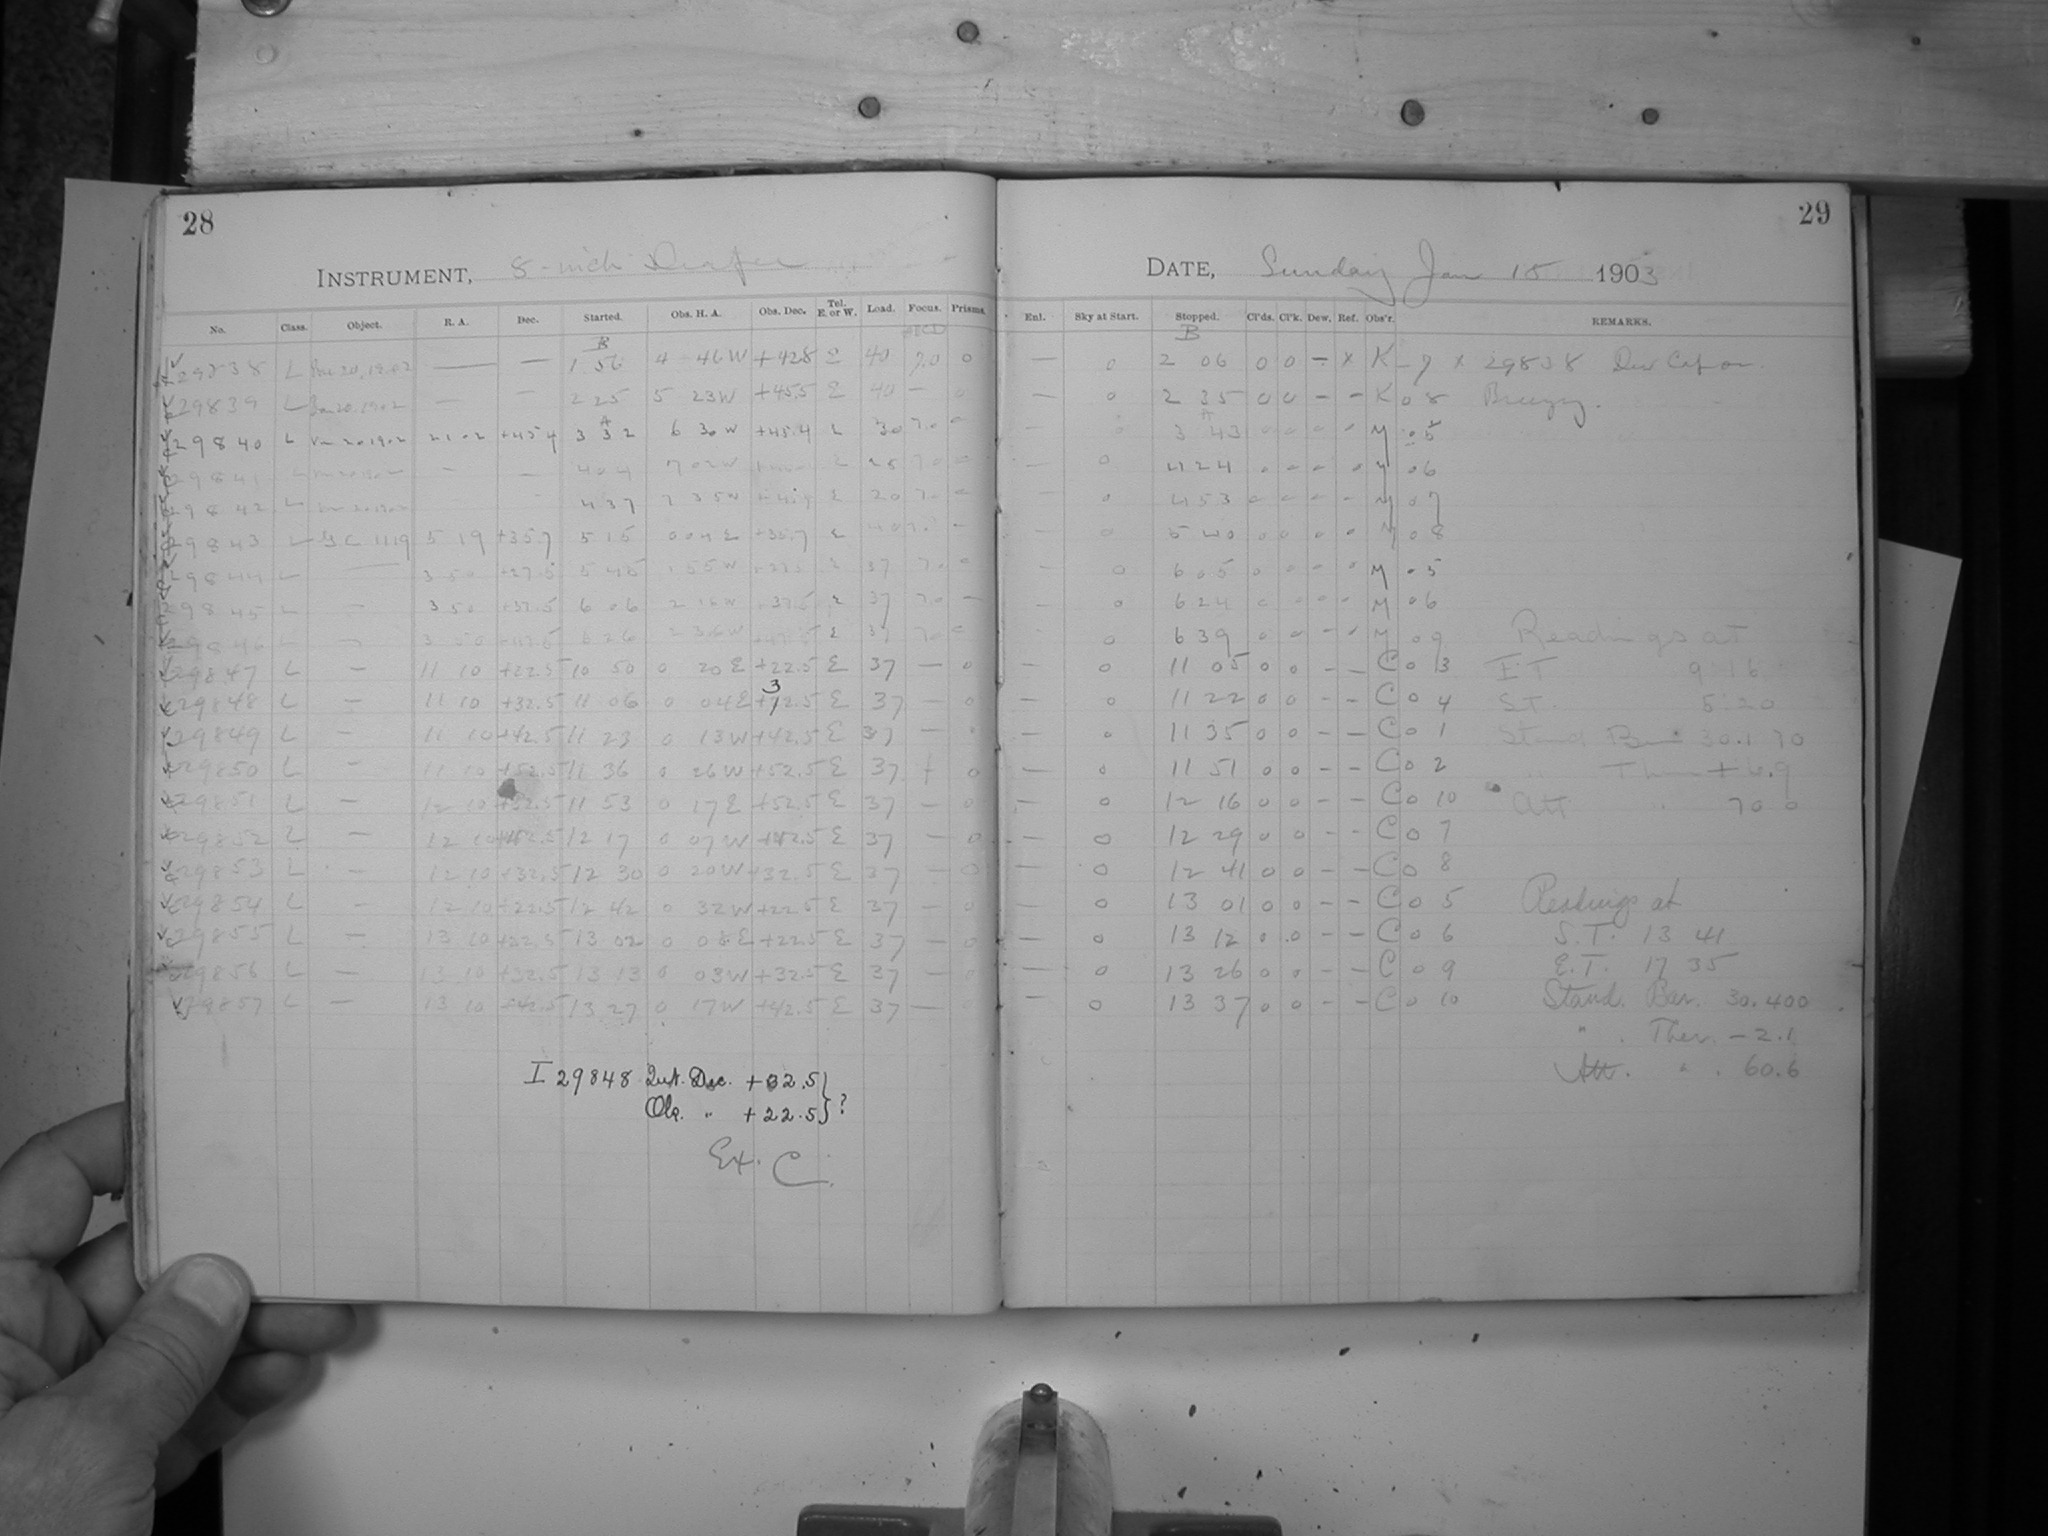 28
INSTRUMENT, 8-inch Draper
No. Class. Object. R. A. Dec. Started. Obs. H. A. Obs. Dec. Tel. E. or W. Load. Focus. Prisms.
B
29838 L 1 56 4 46W +42.8 E 40 7.0 0
29839 L — — 2 25 5 23W +45.5 E 40 — 0
A
29840 L 21 02 +45.4 3 32 6 30W +45.4 E 30 7.0
29841 L — — 4 04 7 02W E 25 7.0
29842 L 4 37 7 35W E 20
29843 L G.C. 1119 5 19 +35.7 5 15 0 04 E +35.7 E
29844 L 3 50 +27.5 5 45 1 55W E 37 7.0
29845 L — 3 50 +37.5 6 06 2 16W +37.5 E 37 7.0 —
29846 L — 3 50 +47.5 6 26 2 36W +47.5 E 37 7.0
29847 L — 11 10 +22.5 10 50 0 20E +22.5 E 37 — 0
3
29848 L — 11 10 +32.5 11 06 0 04E +22.5 E 37 — 0
29849 L — 11 10 +42.5 11 23 0 13W +42.5 E 37 —
29850 L — 11 10 +52.5 11 36 0 26W +52.5 E 37 0
29851 L — 12 10 +52.5 11 53 0 17E +52.5 E 37 — 0
29852 L — 12 10 +42.5 12 17 0 07W +42.5 E 37 — 0
29853 L — 12 10 +32.5 12 30 0 20W +32.5 E 37 — 0
29854 L — 12 10 +22.5 12 42 0 32W +22.5 E 37 — 0
29855 L — 13 10 +22.5 13 02 0 08E +22.5 E 37 — 0
29856 L — 13 10 +32.5 13 13 0 03W +32.5 E 37 — 0
29857 L — 13 10 +42.5 13 27 0 17W +42.5 E 37 — 0
I 29848 Int. Dec. +32.5
Obs. " +22.5 } ?
Ex. C.
29
DATE, Sunday Jan 18 1903
Enl. Sky at Start. Stopped. Cl'ds. Cl'k. Dew. Ref. Obs'r. REMARKS.
B
— 0 2 06 0 0 — x K — 7 x 29838 Dew Cap on.
— 0 2 35 0 0 — — K 0 8 Breezy.
A
— 0 3 43 0 0 0 0 M 0 5
— 0 4 24 0 0 0 0 M 0 6
— 0 4 53 0 0 — — M 0 7
— 0 5 40 0 0 0 0 M 0 8
— 0 6 05 0 0 0 0 M 0 5
— 0 6 24 0 0 0 0 M 0 6
— 0 6 39 0 0 — 0 M 0 9 Readings at
— 0 11 05 0 0 — — C 0 3 E.T. 9 16
— 0 11 22 0 0 — — C 0 4 S.T. 5 20
— 0 11 35 0 0 — — C 0 1 Stand Bar 30.170
— 0 11 51 0 0 — — C 0 2 " Ther
— 0 12 16 0 0 — — C 0 10 Att " 70 0
— 0 12 29 0 0 — — C 0 7
— 0 12 41 0 0 — — C 0 8
— 0 13 01 0 0 — — C 0 5 Readings at
— 0 13 12 0 0 — — C 0 6 S.T. 13 41
— 0 13 26 0 0 — — C 0 9 E.T. 17 35
— 0 13 37 0 0 — — C 0 10 Stand. Bar. 30.400
" Ther. -2.1
Att. " 60.6